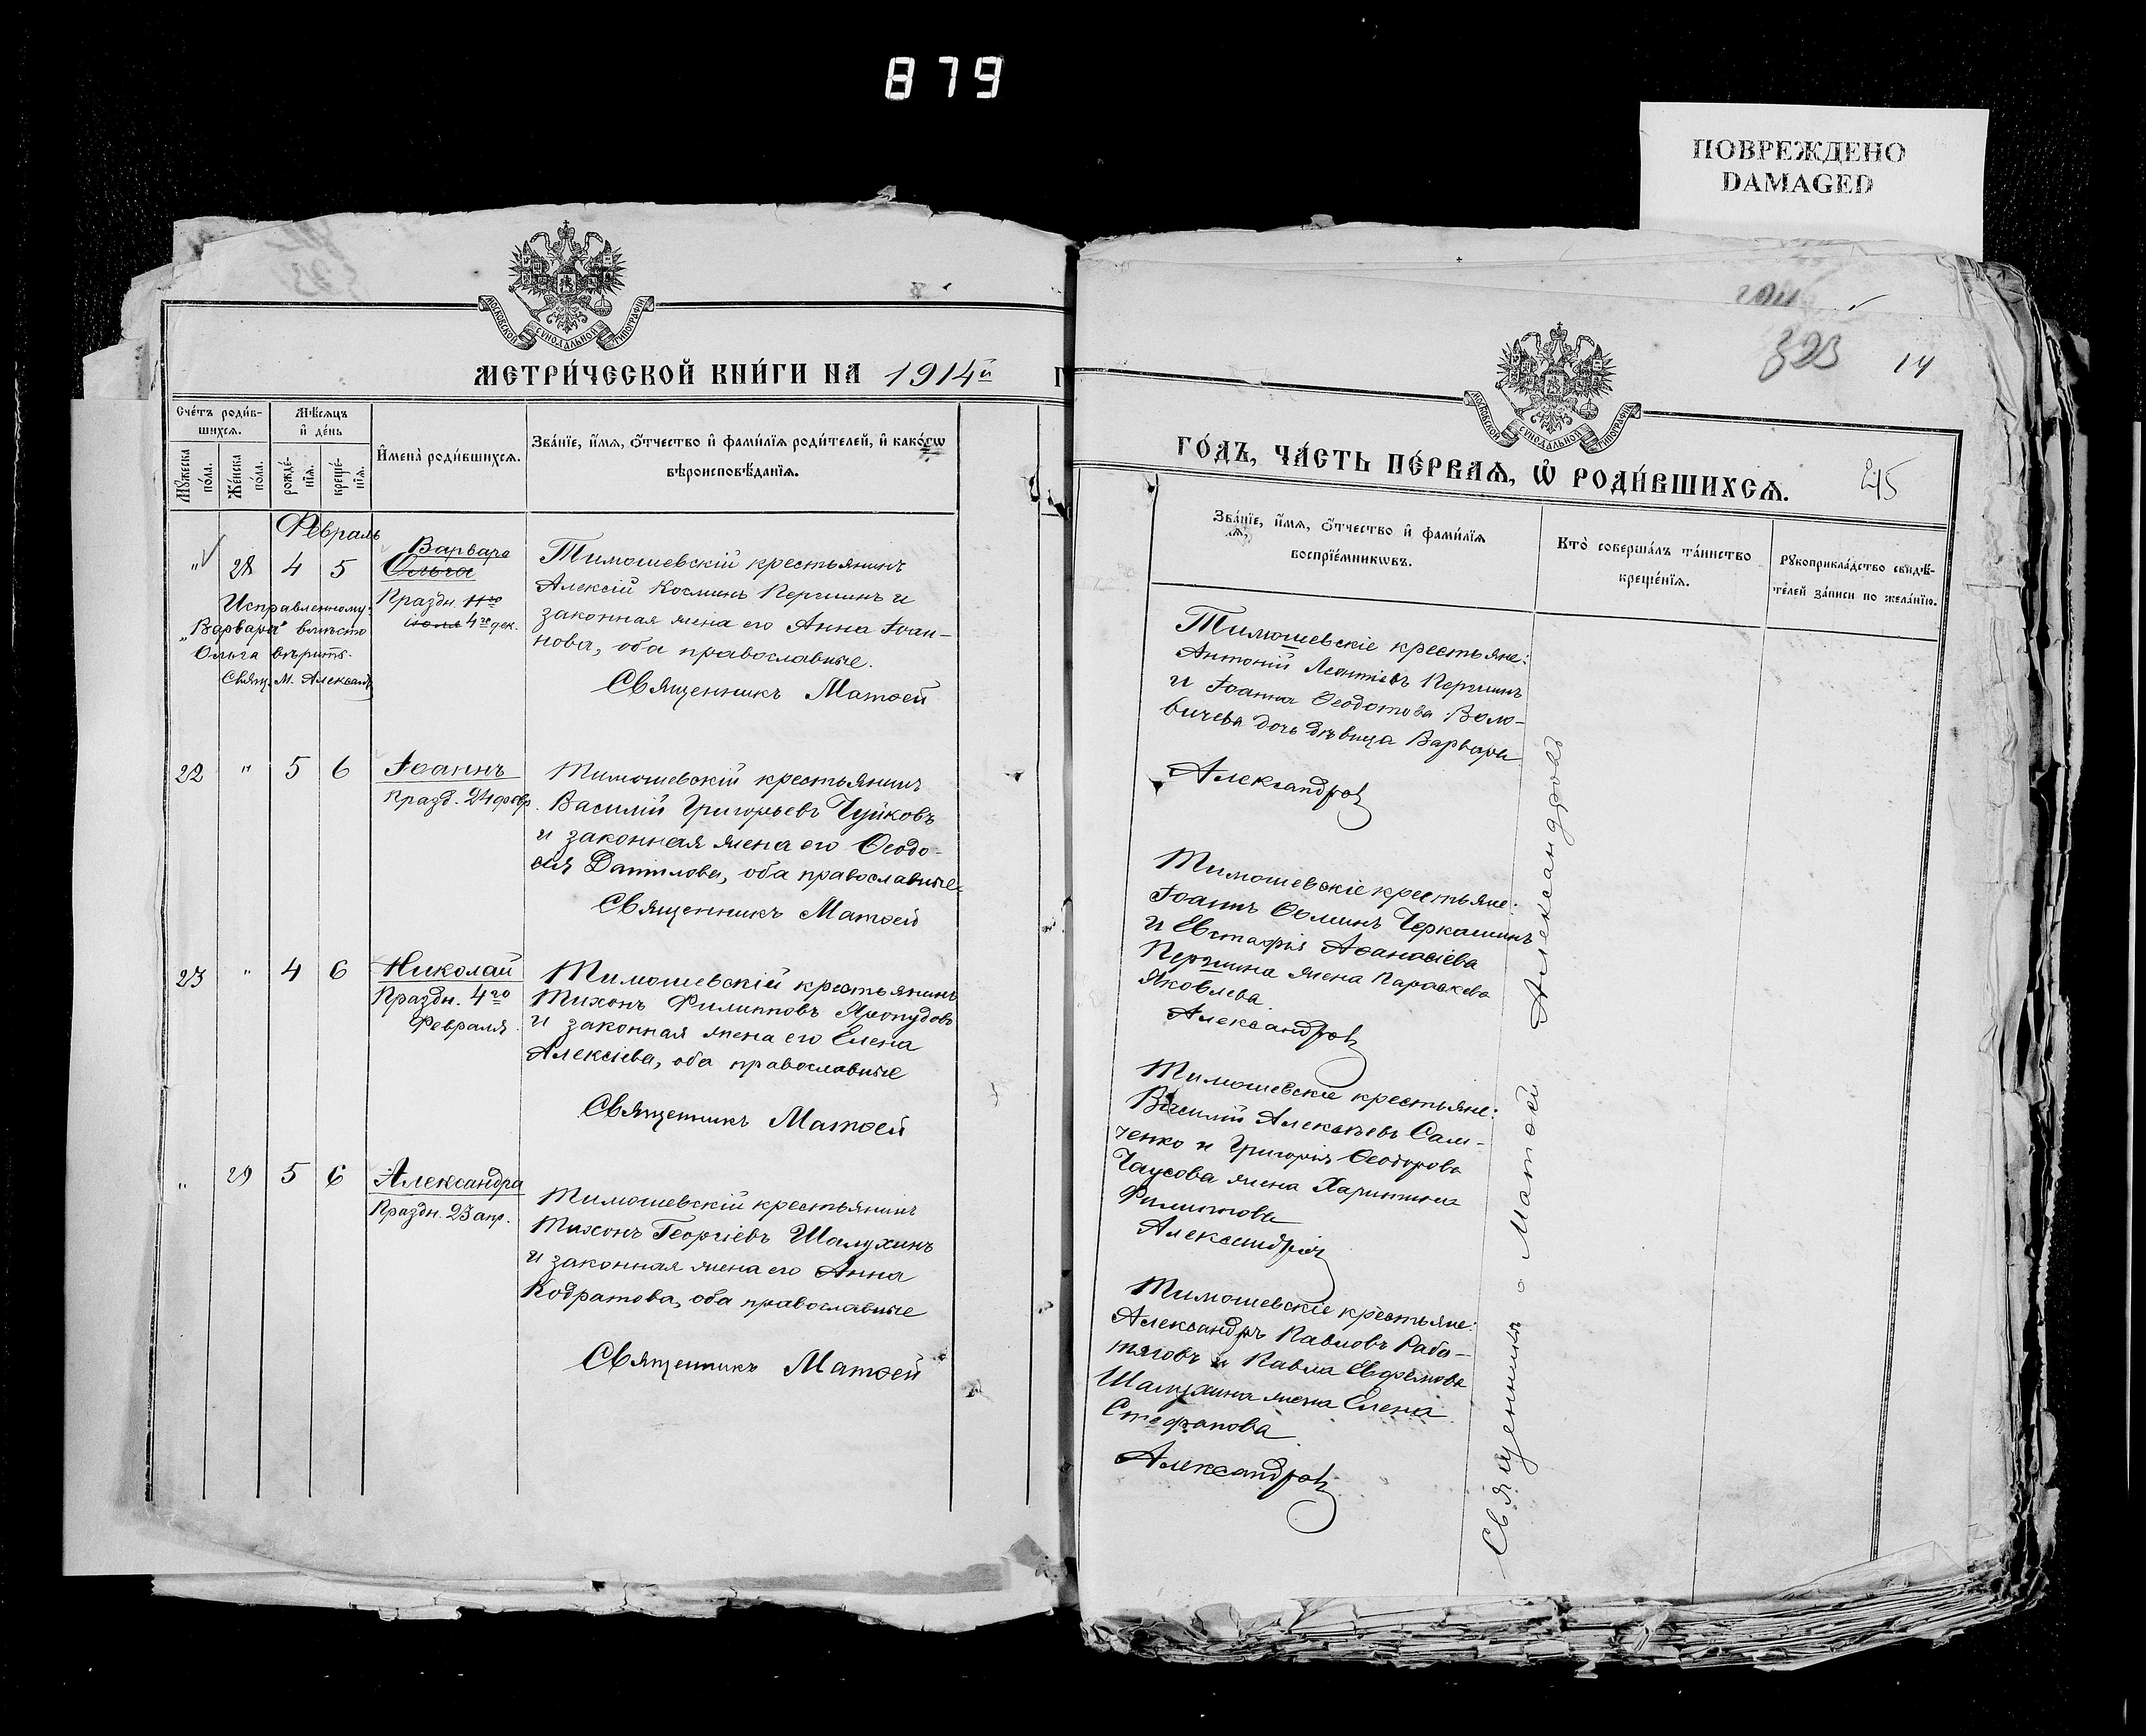 879
ПОВРЕЖДЕНО
DAMAGED
МОСКОВСКОЙ СѴНОДАЛЬНОЙ ТИПОГРАФІИ
МЕТРИ́ЧЕСКОЙ КНИ́ГИ НА 1914й
Сче́тъ роди́в-
шихсѧ.
Мѣ́сѧцъ
и҆ де́нь
Мꙋ́жеска
по́ла.
Же́нска
по́ла.
рожде́-
нїѧ.
креще́-
нїѧ.
И҆мена̀ роди́вшихсѧ.
Зва́нїе, и҆́мѧ, ѻ҆́тчество и҆ фами́лїѧ роди́телей, и҆ како́гѡ
вѣроисповѣ́данїѧ.
Февраль
" 28 4 5
Варвара
Ольга
Праздн. 11го
іюля 4го дек.
Исправленному:
„Варвара" вмѣсто
Ольга вѣрить.
Свящ. М. Александр
Тимошевскій крестьянинъ
Алексій Косминъ Першинъ и
законная жена его Анна Іоан-
нова, оба православные.
Священникъ Матѳей
22 " 5 6
Іоаннъ
Празд. 24 февр.
Тимошевскій крестьянинъ
Василій Григорьевъ Чуйковъ
и законная жена его Ѳеодо-
сія Даниилова, оба православные
Священникъ Матѳей
23 " 4 6
Николай
Праздн. 4го
Февраля.
Тимошевскій крестьянинъ
Тихонъ Филипповъ
и законная жена его Елена
Алексіева, оба православные
Священникъ Матѳей
" 29 5 6
Александра
Праздн. 23 апр.
Тимошевскій крестьянинъ
Тихонъ Георгіевъ Шалухинъ
и законная жена его Анна
Кодратова, оба православные
Священникъ Матѳей
323
14
МОСКОВСКОЙ СѴНОДАЛЬНОЙ ТИПОГРАФІИ
ГО́ДЪ, ЧА́СТЬ ПЕ́РВАѦ, Ѡ҆ РОДИ́ВШИХСѦ.
215
Зва́нїе, и҆́мѧ, ѻ҆́тчество и҆ фами́лїѧ
воспрїе́мникѡвъ.
Кто̀ соверша́лъ та́инство
креще́нїѧ.
Рꙋкоприкла́дство свидѣ́-
телей за́писи по жела́нїю.
Тимошевскіе крестьяне:
Антоній Леонтіевъ Першинъ
и Іоанна Ѳеодотова Воло-
бичева дочь дѣвица Варвара
Александровъ
Тимошевскіе крестьяне:
Іоаннъ Ѳоминъ Черкашинъ
и Евстафія Аѳанасіева
Першина жена Параскева
Яковлева
Александровъ
Тимошевскіе крестьяне:
Василій Алексѣевъ Сам-
ченко и Григорія Ѳеодорова
Чаусова жена Харитина
Филиппова
Александровъ
Тимошевскіе крестьяне:
Александръ Павловъ Рабо-
тяговъ и Павла Евфремова
Шалухина жена Елена
Стефанова
Александровъ
Священникъ Матѳей Александровъ